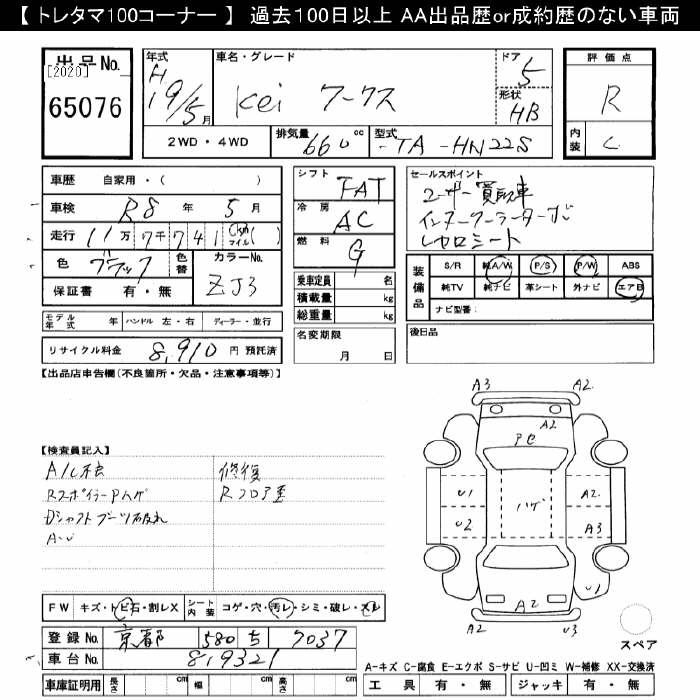 【 トレタマ100コーナー 】 過去100日以上 AA出品歴or成約歴のない車両
出品No.
[2020]
65076
年式
H
19/5月
車名・グレード
Kei ワークス
ドア
5
形状
HB
評価点
R
内装
C
2WD・4WD
排気量 660 cc
型式 -TA-HN22S
車歴 自家用・( )
車検 R8年 5月
走行 11万7千741 (km マイル)( )
色 ブラック
色替
カラーNo.
ZJ3
保証書 有・無
シフト
FAT
冷房
AC
燃料
G
セールスポイント
ユーザー買取車
インタークーラーターボ
レカロシート
乗車定員 名
積載量 kg
総重量 kg
装備品
S/R 純A/W P/S P/W ABS
純TV 純ナビ 革シート 外ナビ エアB
ナビ型番:
モデル年式 年 ハンドル 左・右 ディーラー・並行
リサイクル料金 8,910 円 預託済
名変期限
月 日
後日品
【出品店申告欄(不良箇所・欠品・注意事項等)】
【検査員記入】
A/C不良
RスポイラーPハゲ
Dシャフトブーツ破れ
A-U
修復
Rフロア歪
A3 A2
A2
PC
U1 ハゲ A2
U2 A3
U1
A2
A2 U3
スペア
FW キズ・トビ石・割レX
シート内装 コゲ・穴・汚レ・シミ・破レ・スレ
登録No. 京都 580 ち 7037
車台No. 819321
車庫証明用 長さ cm 幅 cm 高さ cm
A-キズ C-腐食 E-エクボ S-サビ U-凹ミ W-補修 XX-交換済
工具 有・無 ジャッキ 有・無